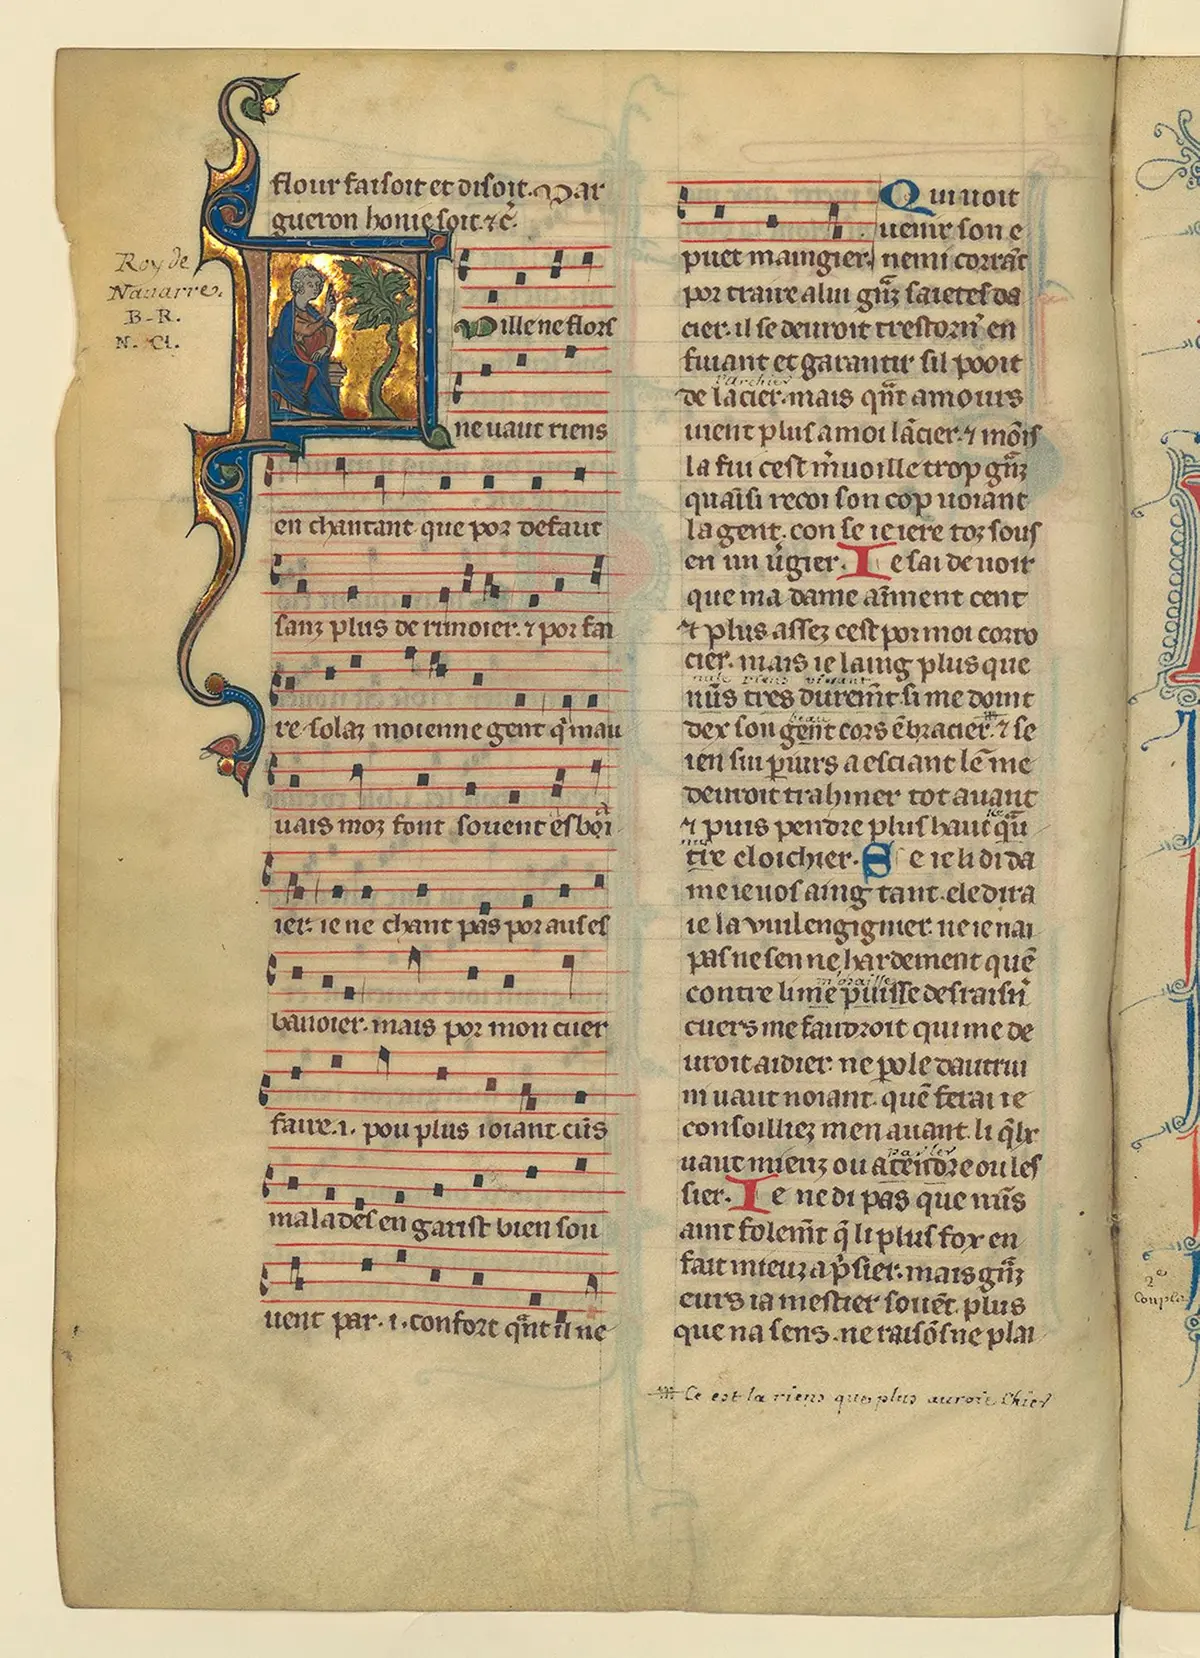 flour faisoit et disoit. Mar
gueron honie soit. ⁊c̃.
Roy de
Navarre.
B-R.
N. Ci.
Fuille ne flors
ne vaut riens
en chantant que por defaut
sanz plus de rimoier. ⁊ por fai
re solaz moienne gent q̃ mau
uais moz font souent es
ier. ie ne chant pas por aus es
banoier. mais por mon cuer
faire .i. pou plus ioiant. cũs
malades en garist bien sou
uent par .i. confort q̃nt il ne
puet maingier.
Qui uoit
uenir son e
nemi corrãt
por traire a lui gñz saietes da
cier. il se deuroit trestorñ en
fuiant et garantir sil pooit
larchier
de lacier. mais qñt amours
uient plus a moi lãcier. ⁊ mõis
la fui cest m̃uoille trop gñz
quaĩsi recoi son cop uoiant
la gent. con se ie iere toz sous
en un ũgier. Ie sai de uoir
que ma dame aiment cent
⁊ plus assez cest por moi corro
cier. mais ie laing plus que
nule riens vivant
nũs tres duremẽt si me doint
beau
dex son gent cors ẽbracier. ⁊ se
ien sui p̃iurs a esciant lẽ me
deuroit trahiner tot auant
⁊ puis pendre plus haut qũ
tre cloichier. Se ie li di da
me ie uos aing tant. ele dira
ie la vuil engignier. ne ie nai
pas ne sen ne hardement quẽ
contre li me puisse desraisñ
cuers me faudroit qui me de
uroit aidier. ne pole dautrui
ni uaut noiant. quẽ ferai ie
consoilliez men auant. li q̃lx
parler
uaut mieuz ou atendre ou les
sier. Ie ne di pas que nũs
aint folemẽt q̃ li plus fox en
fait mieuz a p̃sier. mais gñz
eurs ia mestier souẽt. plus
que na sens. ne raisõs ne plai
Ce est la riens que plus auroie Chier
2e
Couplet